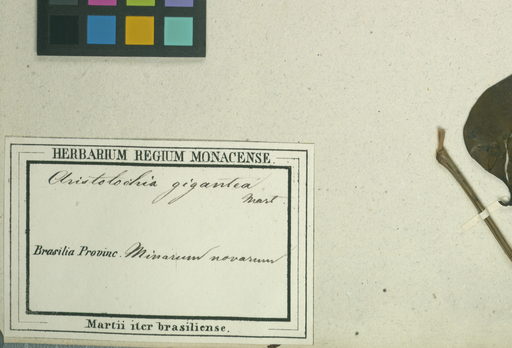 HERBARIUM REGIUM MONACENSE.
Aristolochia gigantea
Mart.
Brasilia Provinc. Minarum novarum
Martii iter brasiliense.